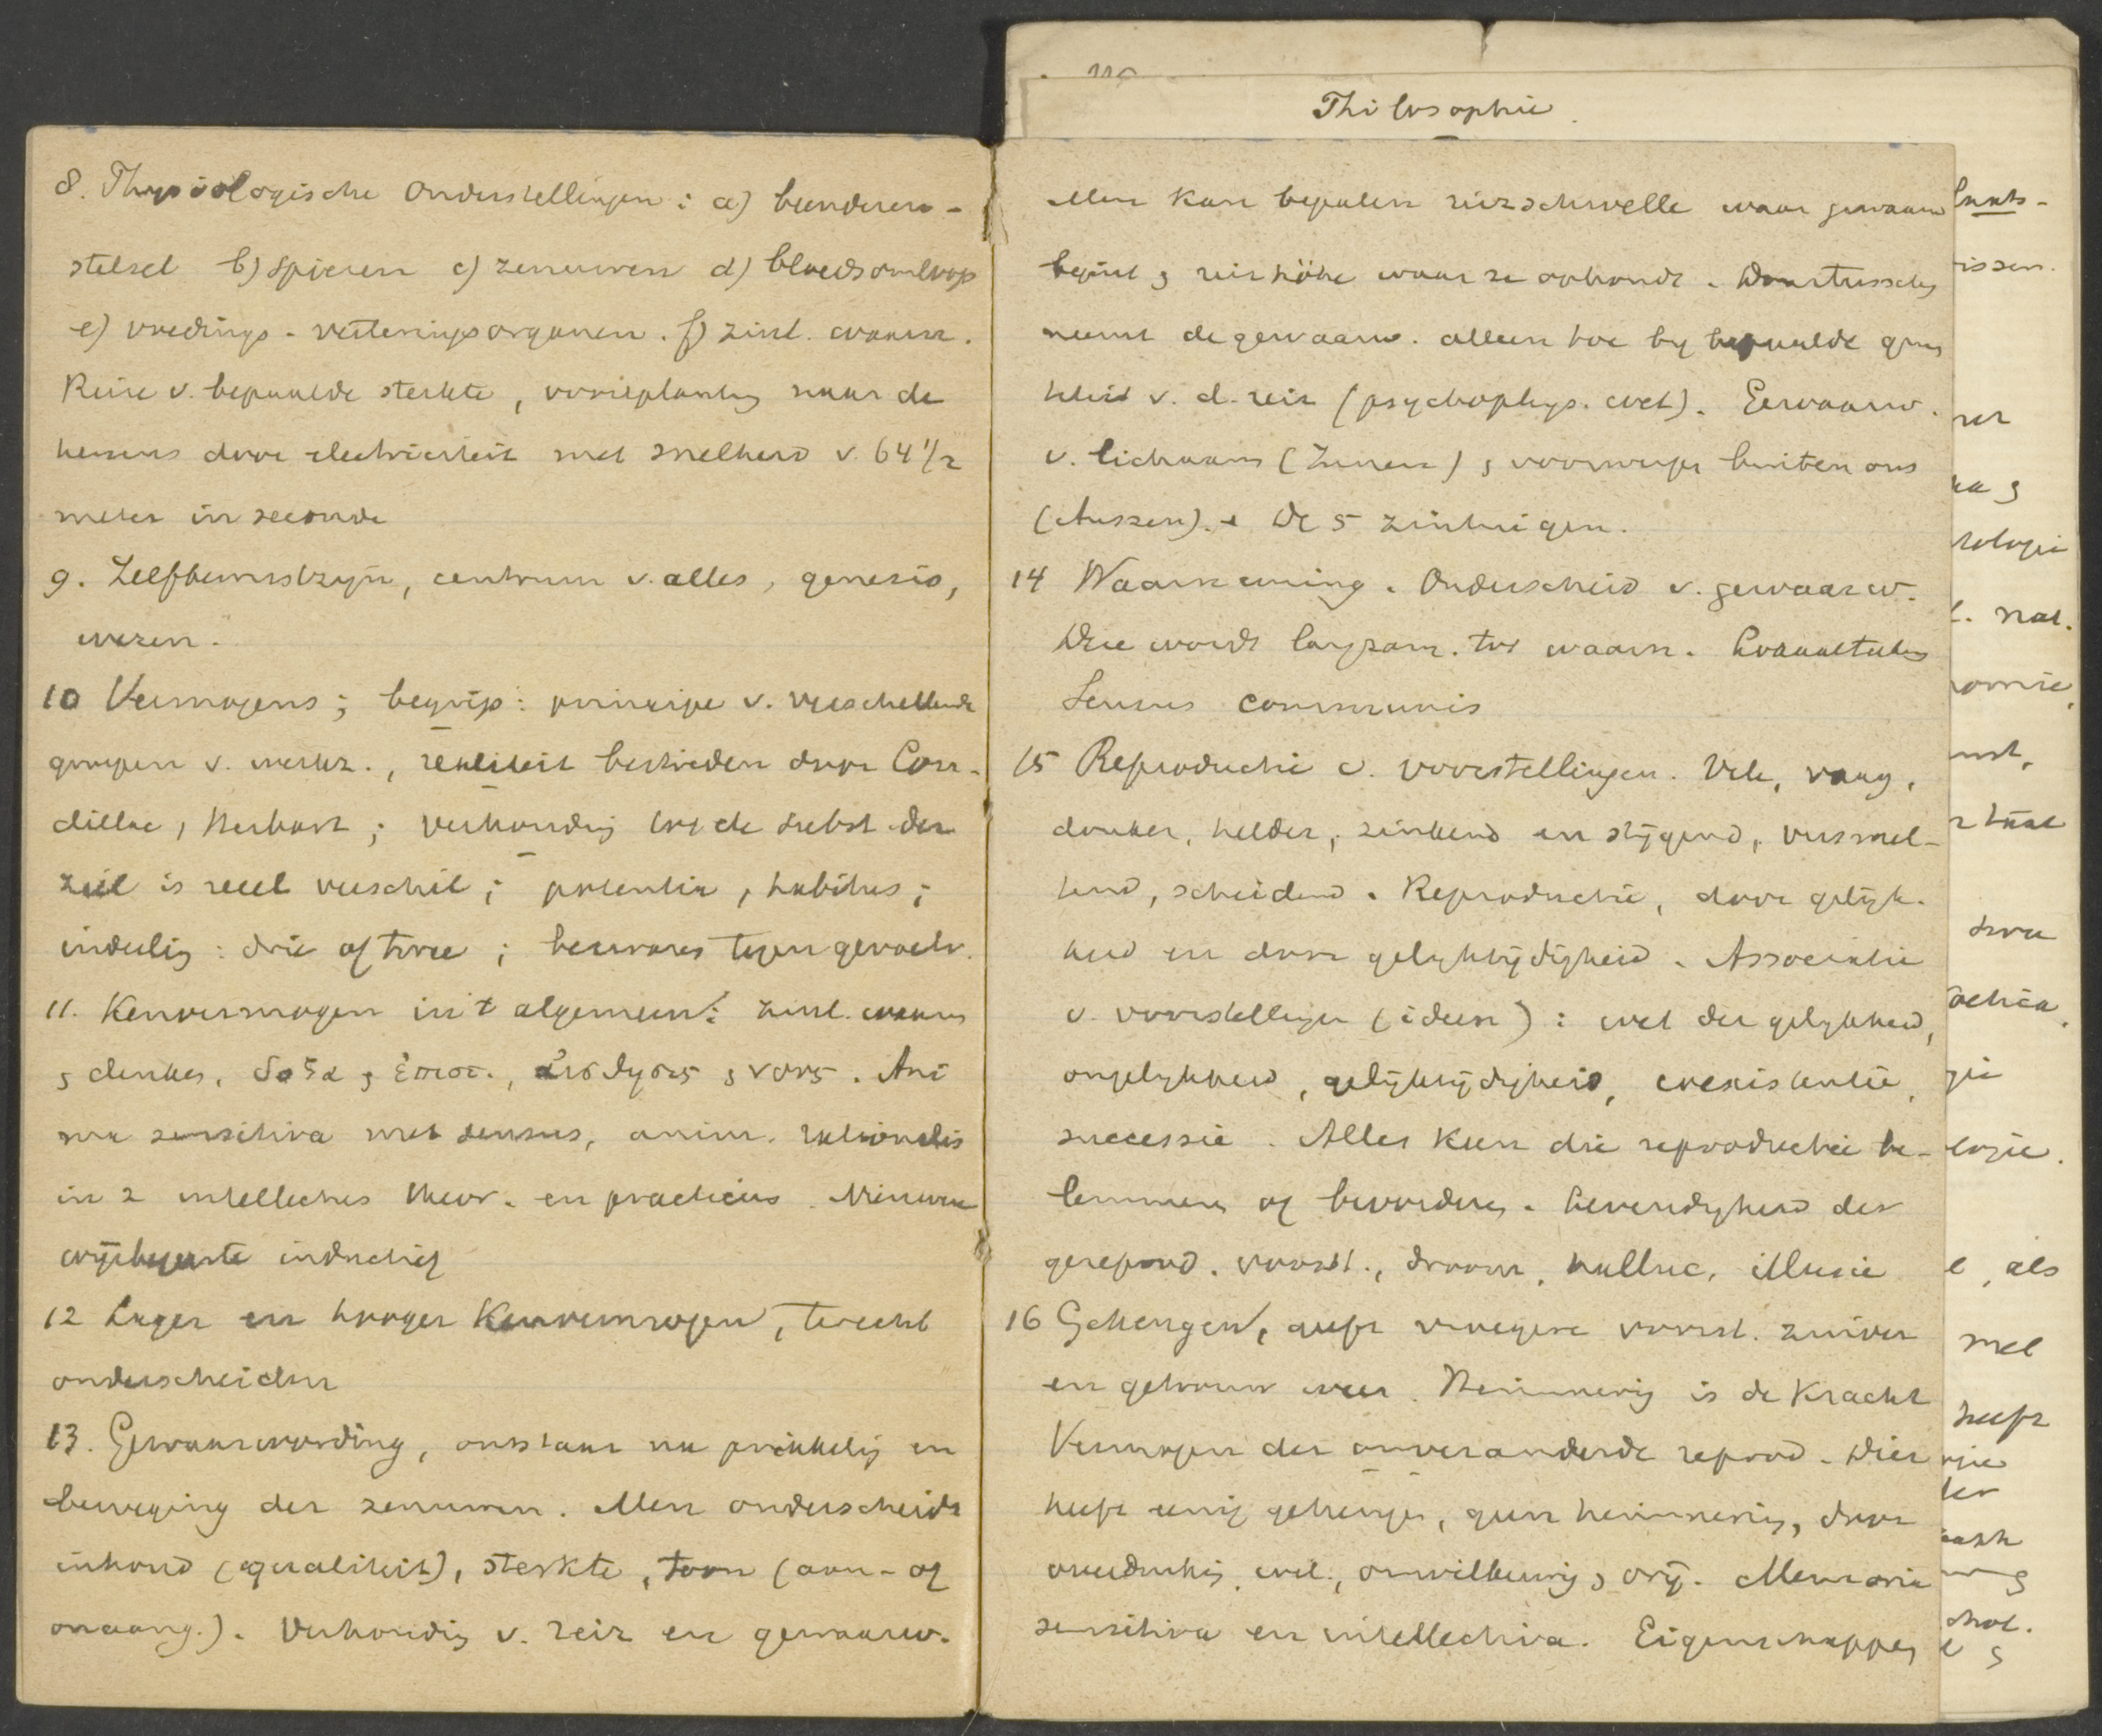 Philosophie.
8. Physiologische Onderstellingen: a) beenderen-
stelsel b) spieren c) zenuwen d) bloedsomloop
e) voedings-verteringsorganen. f) zintl. waarn.
Reize v. bepaalde sterkte, voortplanting naar de
hersens door electriciteit met snelheid v. 64 1/2
meter in seconde
9. Zelfbewustzijn, centrum v. alles, genesis,
wezen.
10 Vermogens; begrip: principe v. verschillende
groepen v. werkz., realiteit bestreden door Con-
dillac, Herbart; verhouding tot de subst. der
ziel is reëel verschil; potentia, habitus;
indeeling: drie of twee; bezwaren tegen gevoelv.
11. Kenvermogen in 't algemeen: zintl. waarn
& denken, δοξα & ἐπιστ., αἰσθησις & νους. Ani
ma sensitiva met sensus, anim. rationalis
in 2 intellectus theor. en practicus. Nieuwere
wijsbegeerte
12 Lager en hooger Kenvermogen, terecht
onderscheiden
13. Gewaarwording, ontstaat na prikkeling en
beweging der zenuwen. Men onderscheidt
inhoud (qualiteit), sterkte, toon (aan- of
onaang.). Verhouding v. reiz en gewaarw.
Men kan bepalen reizschwelle waar gewaarw
begint & reizhöhe waar ze ophoudt. Daartusschen
neemt de gewaarw. alleen toe by bepaalde groo
heid v. d. reiz (psychophys. wet). Gewaarw.
v. lichaam (Innen) & voorwerpen buiten ons
(Aussen). De 5 zintuigen.
14 Waarneming. Onderscheid v. gewaarw.
Deze wordt langzam. tot waarn.
Sensus communis
15 Reproductie v. voorstellingen. Vele, vaag,
donker, helder, zinkend en stijgend, versmel-
tend, scheidend. Reproductie, door gelijk-
heid en door gelyktijdigheid. Associatie
v. voorstellingen (ideën): wet der gelykheid,
ongelykheid, gelijktijdigheid, coexistentie,
successie. Alles kan die reproductie be-
lemmeren of bevorderen. Levendigheid der
gereprod. voorst., droom, halluc, illusie
16 Geheugen, geeft vroegere voorst. zuiver
en getrouw weer. Herinnering is de Kracht
Vermogen der onveranderde reprod. Dier
heeft eenig geheugen, geen herinnering, door
overdenking, wil, onwillekeurig & vrij. Memoria
sensitiva en intellectiva. Eigenschappen